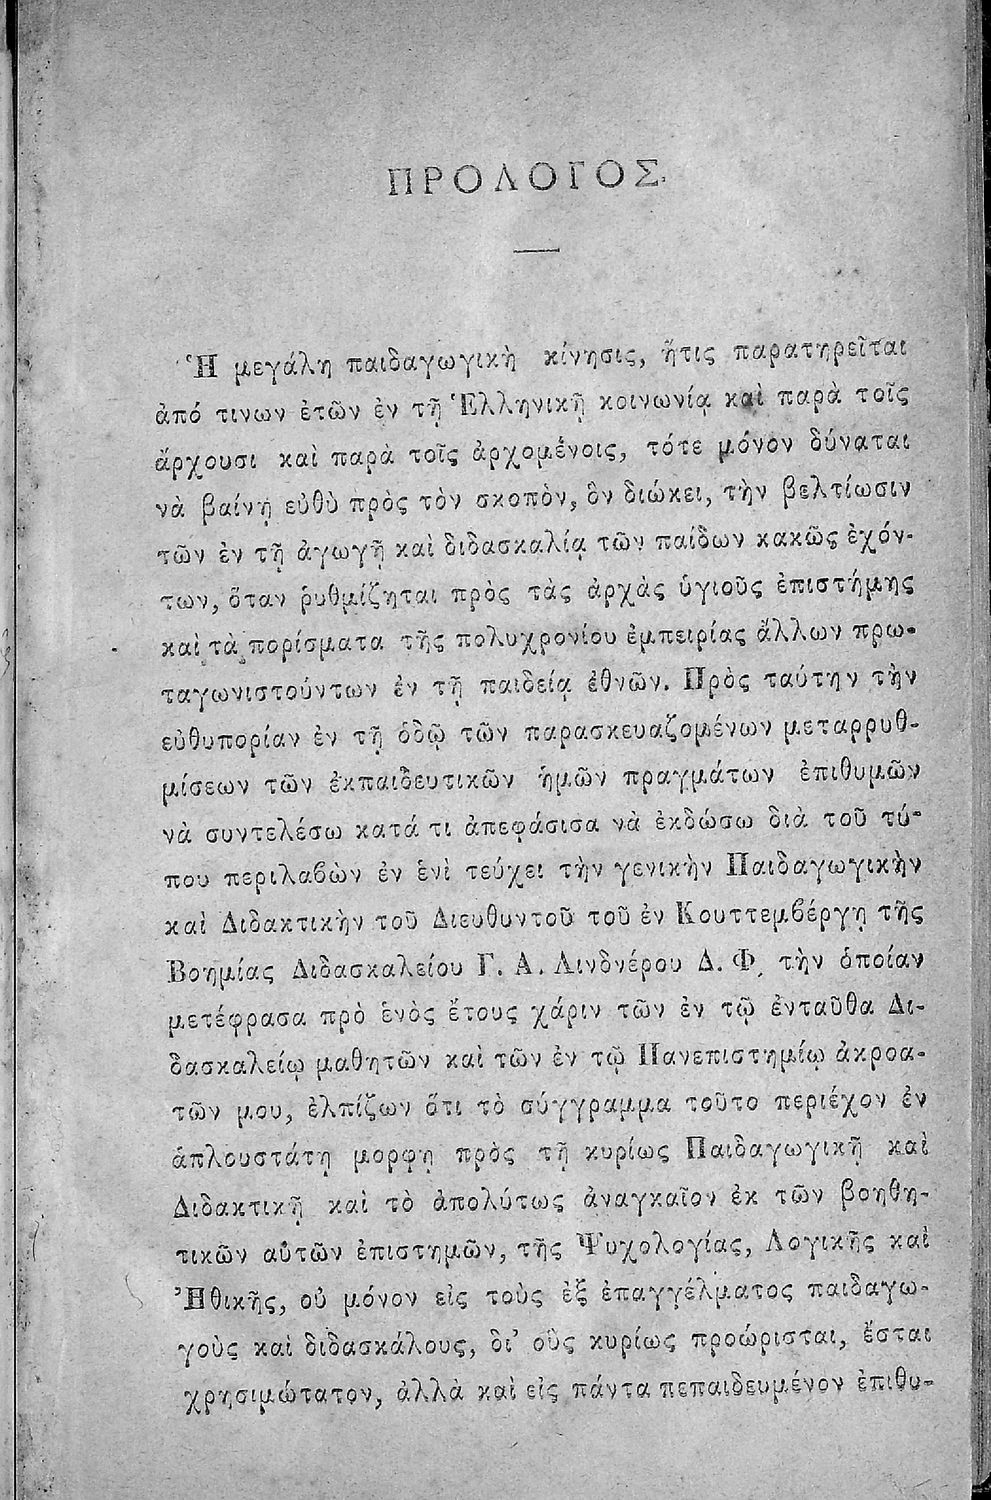 ΠΡΟΛΟΓΟΣ.
Ἡ μεγάλη παιδαγωγικὴ κίνησις, ἥτις παρατηρεῖται
ἀπό τινων ἐτῶν ἐν τῇ Ἑλληνικῇ κοινωνίᾳ καὶ παρὰ τοῖς
ἄρχουσι καὶ παρὰ τοῖς ἀρχομένοις, τότε μόνον δύναται
νὰ βαίνῃ εὐθὺ πρὸς τὸν σκοπὸν, ὃν διώκει, τὴν βελτίωσιν
τῶν ἐν τῇ ἀγωγῇ καὶ διδασκαλίᾳ τῶν παίδων κακῶς ἐχόν-
των, ὅταν ῥυθμίζηται πρὸς τὰς ἀρχὰς ὑγιοῦς ἐπιστήμης
καὶ τὰ πορίσματα τῆς πολυχρονίου ἐμπειρίας ἄλλων πρω-
ταγωνιστούντων ἐν τῇ παιδείᾳ ἐθνῶν. Πρὸς ταύτην τὴν
εὐθυπορίαν ἐν τῇ ὁδῷ τῶν παρασκευαζομένων μεταρρυθ-
μίσεων τῶν ἐκπαιδευτικῶν ἡμῶν πραγμάτων ἐπιθυμῶν
νὰ συντελέσω κατά τι ἀπεφάσισα νὰ ἐκδώσω διὰ τοῦ τύ-
που περιλαβὼν ἐν ἑνὶ τεύχει τὴν γενικὴν Παιδαγωγικὴν
καὶ Διδακτικὴν τοῦ Διευθυντοῦ τοῦ ἐν Κουττεμβέργῃ τῆς
Βοημίας Διδασκαλείου Γ. Α. Λινδνέρου Δ. Φ, τὴν ὁποίαν
μετέφρασα πρὸ ἑνὸς ἔτους χάριν τῶν ἐν τῷ ἐνταῦθα Δι-
δασκαλείῳ μαθητῶν καὶ τῶν ἐν τῷ Πανεπιστημίῳ ἀκροα-
τῶν μου, ἐλπίζων ὅτι τὸ σύγγραμμα τοῦτο περιέχον ἐν
ἁπλουστάτῃ μορφῃ πρὸς τῇ κυρίως Παιδαγωγικῇ καὶ
Διδακτικῇ καὶ τὸ ἀπολύτως ἀναγκαῖον ἐκ τῶν βοηθη-
τικῶν αὐτῶν ἐπιστημῶν, τῆς Ψυχολογίας, Λογικῆς καὶ
Ἠθικῆς, οὐ μόνον εἰς τοὺς ἐξ ἐπαγγέλματος παιδαγω-
γοὺς καὶ διδασκάλους, δι' οὓς κυρίως προώρισται, ἔσται
χρησιμώτατον, ἀλλὰ καὶ εἰς πάντα πεπαιδευμένον ἐπιθυ-